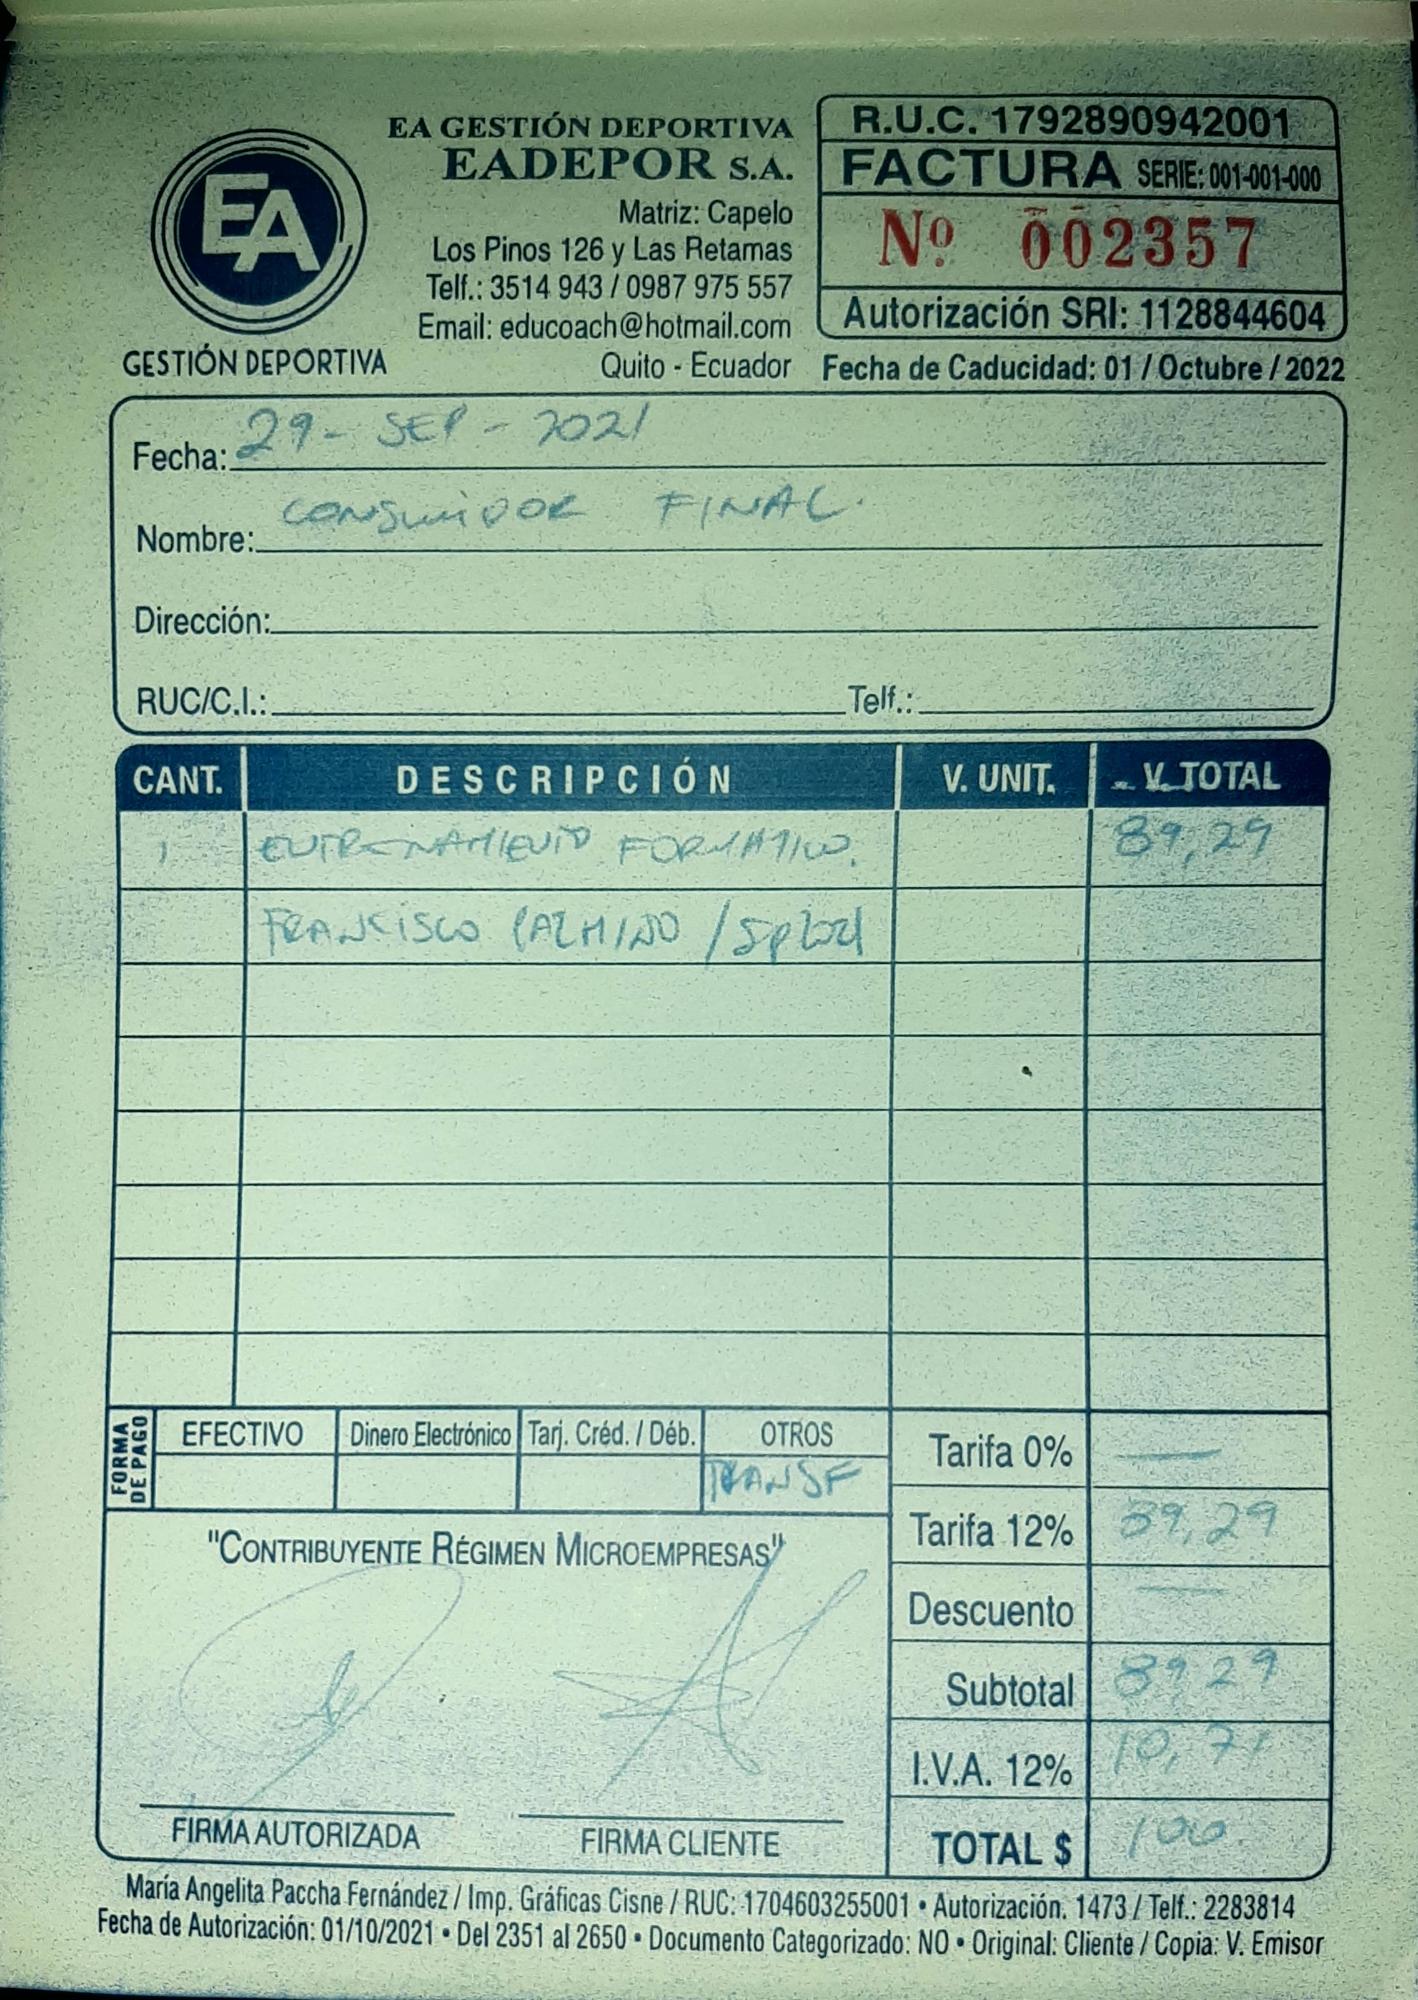 EA
GESTIÓN DEPORTIVA
EA GESTIÓN DEPORTIVA
EADEPOR S.A.
Matriz: Capelo
Los Pinos 126 y Las Retamas
Telf.: 3514 943 / 0987 975 557
Email: educoach@hotmail.com
Quito - Ecuador
R.U.C. 1792890942001
FACTURA SERIE: 001-001-000
Nº 002357
Autorización SRI: 1128844604
Fecha de Caducidad: 01 / Octubre / 2022
Fecha: 29 - SEP - 2021
Nombre: CONSUMIDOR FINAL.
Dirección:
RUC/C.I.: Telf.:
CANT. DESCRIPCIÓN V. UNIT. V. TOTAL
1 ENTRENAMIENTO FORMATIVO. 89,29
FRANCISCO /
FORMA DE PAGO
EFECTIVO Dinero Electrónico Tarj. Créd. / Déb. OTROS
TRANSF
Tarifa 0% —
Tarifa 12% 89,29
Descuento —
Subtotal 89 29
I.V.A. 12% 10,71
TOTAL $ 100
"CONTRIBUYENTE RÉGIMEN MICROEMPRESAS"
FIRMA AUTORIZADA FIRMA CLIENTE
María Angelita Paccha Fernández / Imp. Gráficas Cisne / RUC: 1704603255001 • Autorización: 1473 / Telf.: 2283814
Fecha de Autorización: 01/10/2021 • Del 2351 al 2650 • Documento Categorizado: NO • Original: Cliente / Copia: V. Emisor